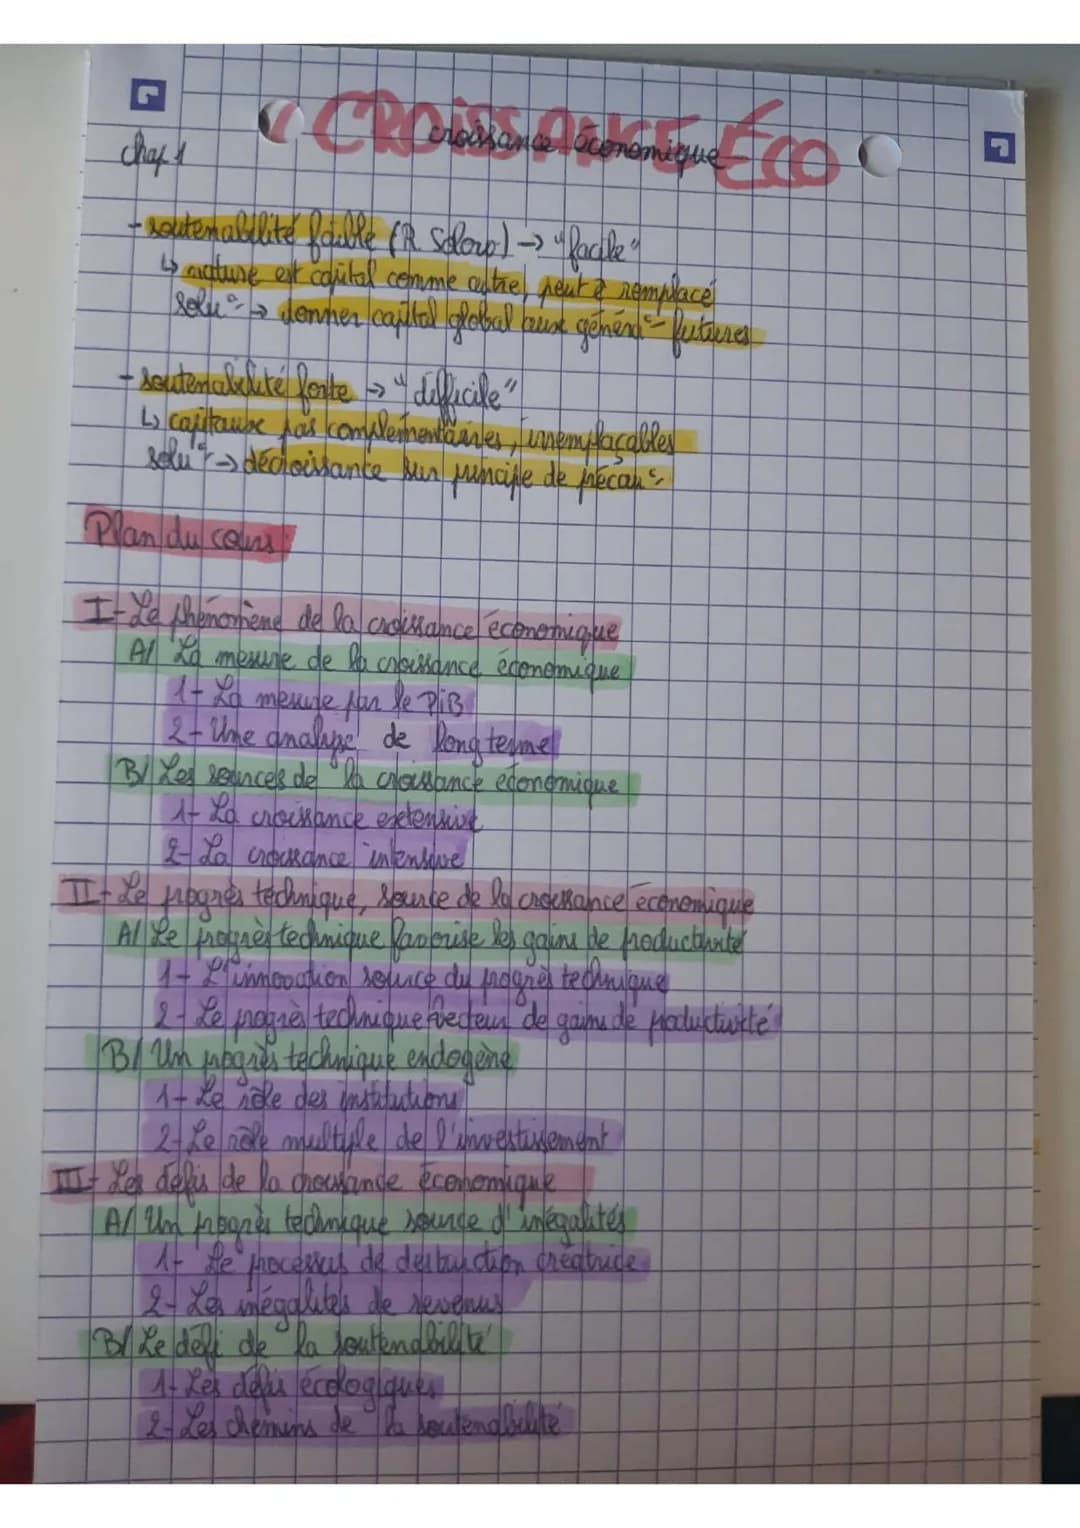 CROISSANCE ÉCO
croissance économique
chap 1
- soutenabilité faible (R. Solow) → "facile"
↳ nature est capital comme autre, peut ê remplacé
solu° → donner capital global aux généra° futures
- soutenabilité forte → "difficile"
↳ capitaux pas complémentaires, irremplaçables
solu° → décroissance sur principe de précau°
Plan du cours :
I - Le phénomène de la croissance économique
A/ La mesure de la croissance économique
1 - La mesure par le PiB
2 - Une analyse de long terme
B/ Les sources de la croissance économique
1 - La croissance extensive
2 - La croissance intensive
II - Le progrès technique, source de la croissance économique
A/ Le progrès technique favorise les gains de productivité
1 - L'innovation source du progrès technique
2 - Le progrès technique vecteur de gains de productivité
B/ Un progrès technique endogène
1 - Le rôle des institutions
2 - Le rôle multiple de l'investissement
III - Les défis de la croissance économique
A/ Un progrès technique source d'inégalités
1 - Le processus de destruction créatrice
2 - Les inégalités de revenus
B/ Le défi de la soutenabilité
1 - Les défis écologiques
2 - Les chemins de la soutenabilité